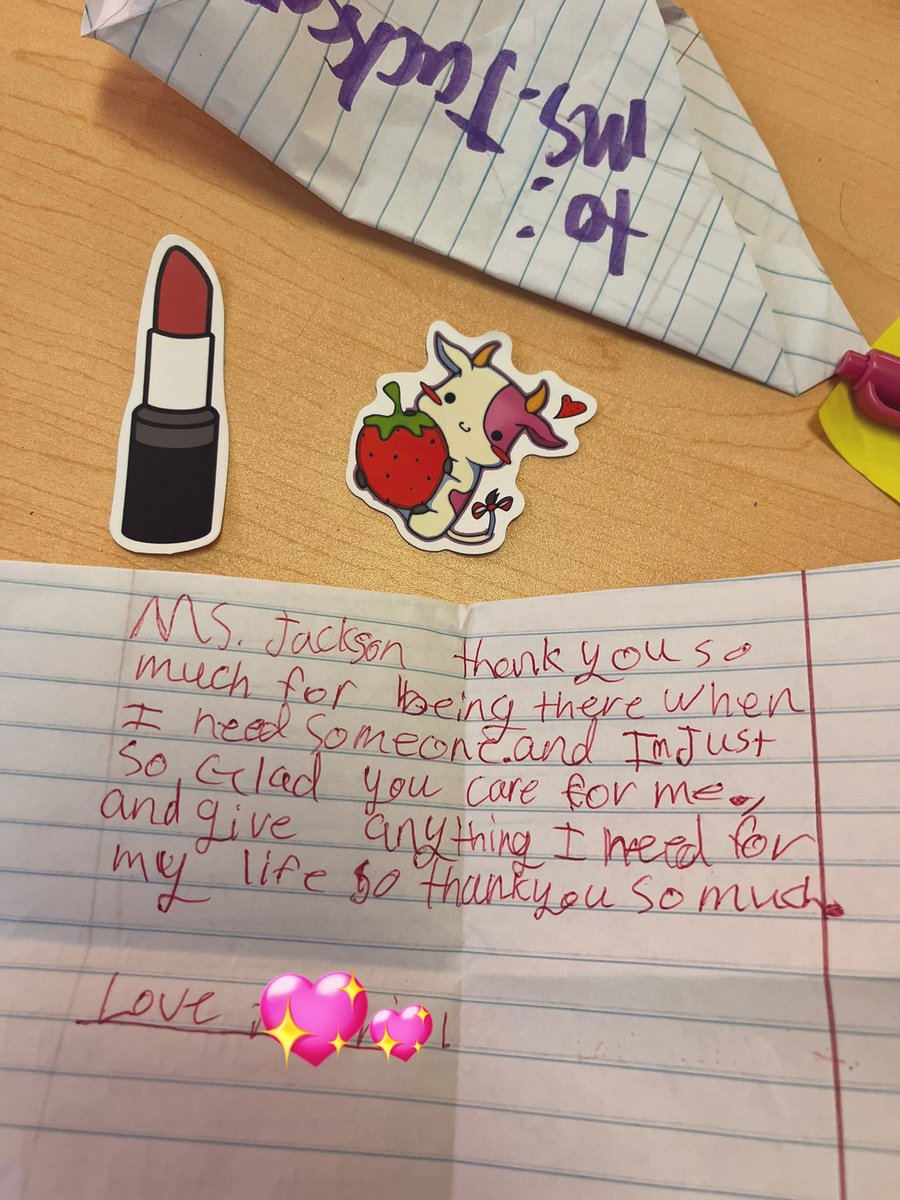 to:
Ms. Jackson
Ms. Jackson thank you so
much for being there when
I need someone.and Im Just
so Glad you care for me.,
and give anything I need for
my life so thankyou so much.
Love